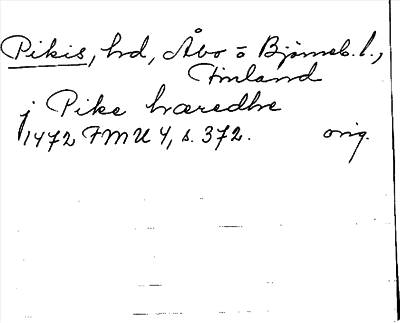 Pikis, hd, Åbo o Björneb. l.,
Finland
j Pike hæredhe
1472 FMU 4, s. 372. orig.